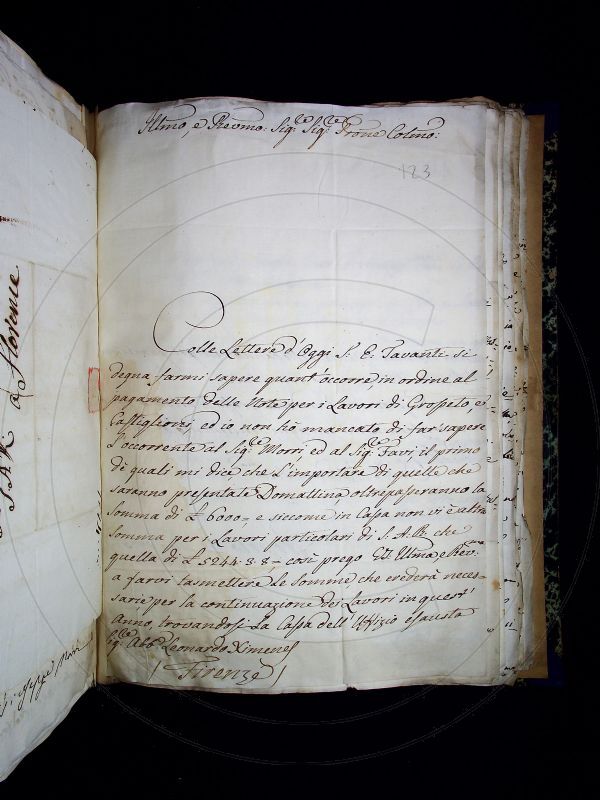 Illmo, e Revmo: Sig.re Sig.re Prone Colmo:
123
Colle Lettere d'Oggi S. E. Tavanti si
degna farmi sapere quant'occorre, in ordine al
pagamento delle Note per i Lavori di Grosseto, e
Castiglioni, ed io non ho mancato di far sapere
l'occorrente al Sig.re Morri, ed al Sig.re Favi, il primo
de quali mi dice, che l'importare di quelle che
saranno presentate Domattina oltrepasseranno la
somma di £ 6000 = e siccome in Cassa non vi è altra
somma per i Lavori particolari di S. A. R. che
quella di £ 5244.3.8 = così prego VS. Illma e Rev.ma
a farvi trasmettere le somme che crederà neces=
sarie per la continuazione dei Lavori in quest'
Anno, trovandosi la Cassa dell'Uffizio esausta
Sig.re Abb.e Leonardo Ximenes
Firenze
S.A.R. a Florence
Giuseppe